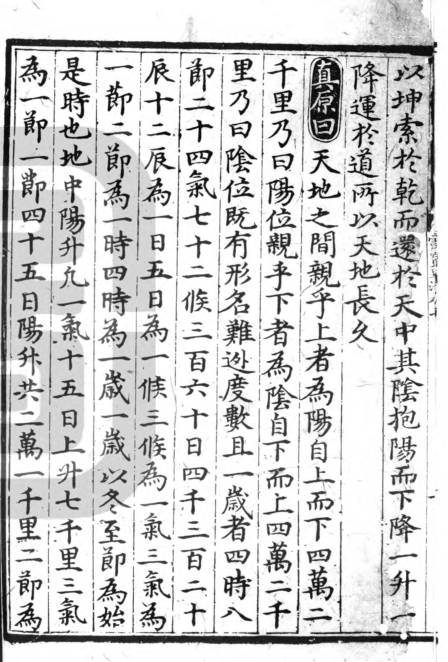 以坤索於乾而還於天中其陰抱陽而下降一升一
降運於道所以天地長久
真原曰 天地之間親乎上者為陽自上而下四萬二
千里乃曰陽位親乎下者為陰自下而上四萬二千
里乃曰陰位既有形名難逃度數且一歲者四時八
節二十四氣七十二候三百六十日四千三百二十
辰十二辰為一日五日為一候三候為一氣三氣為
一節二節為一時四時為一歲一歲以冬至節為始
是時也地中陽升凡一氣十五日上升七千里三氣
為一節一節四十五日陽升共二萬一千里二節為